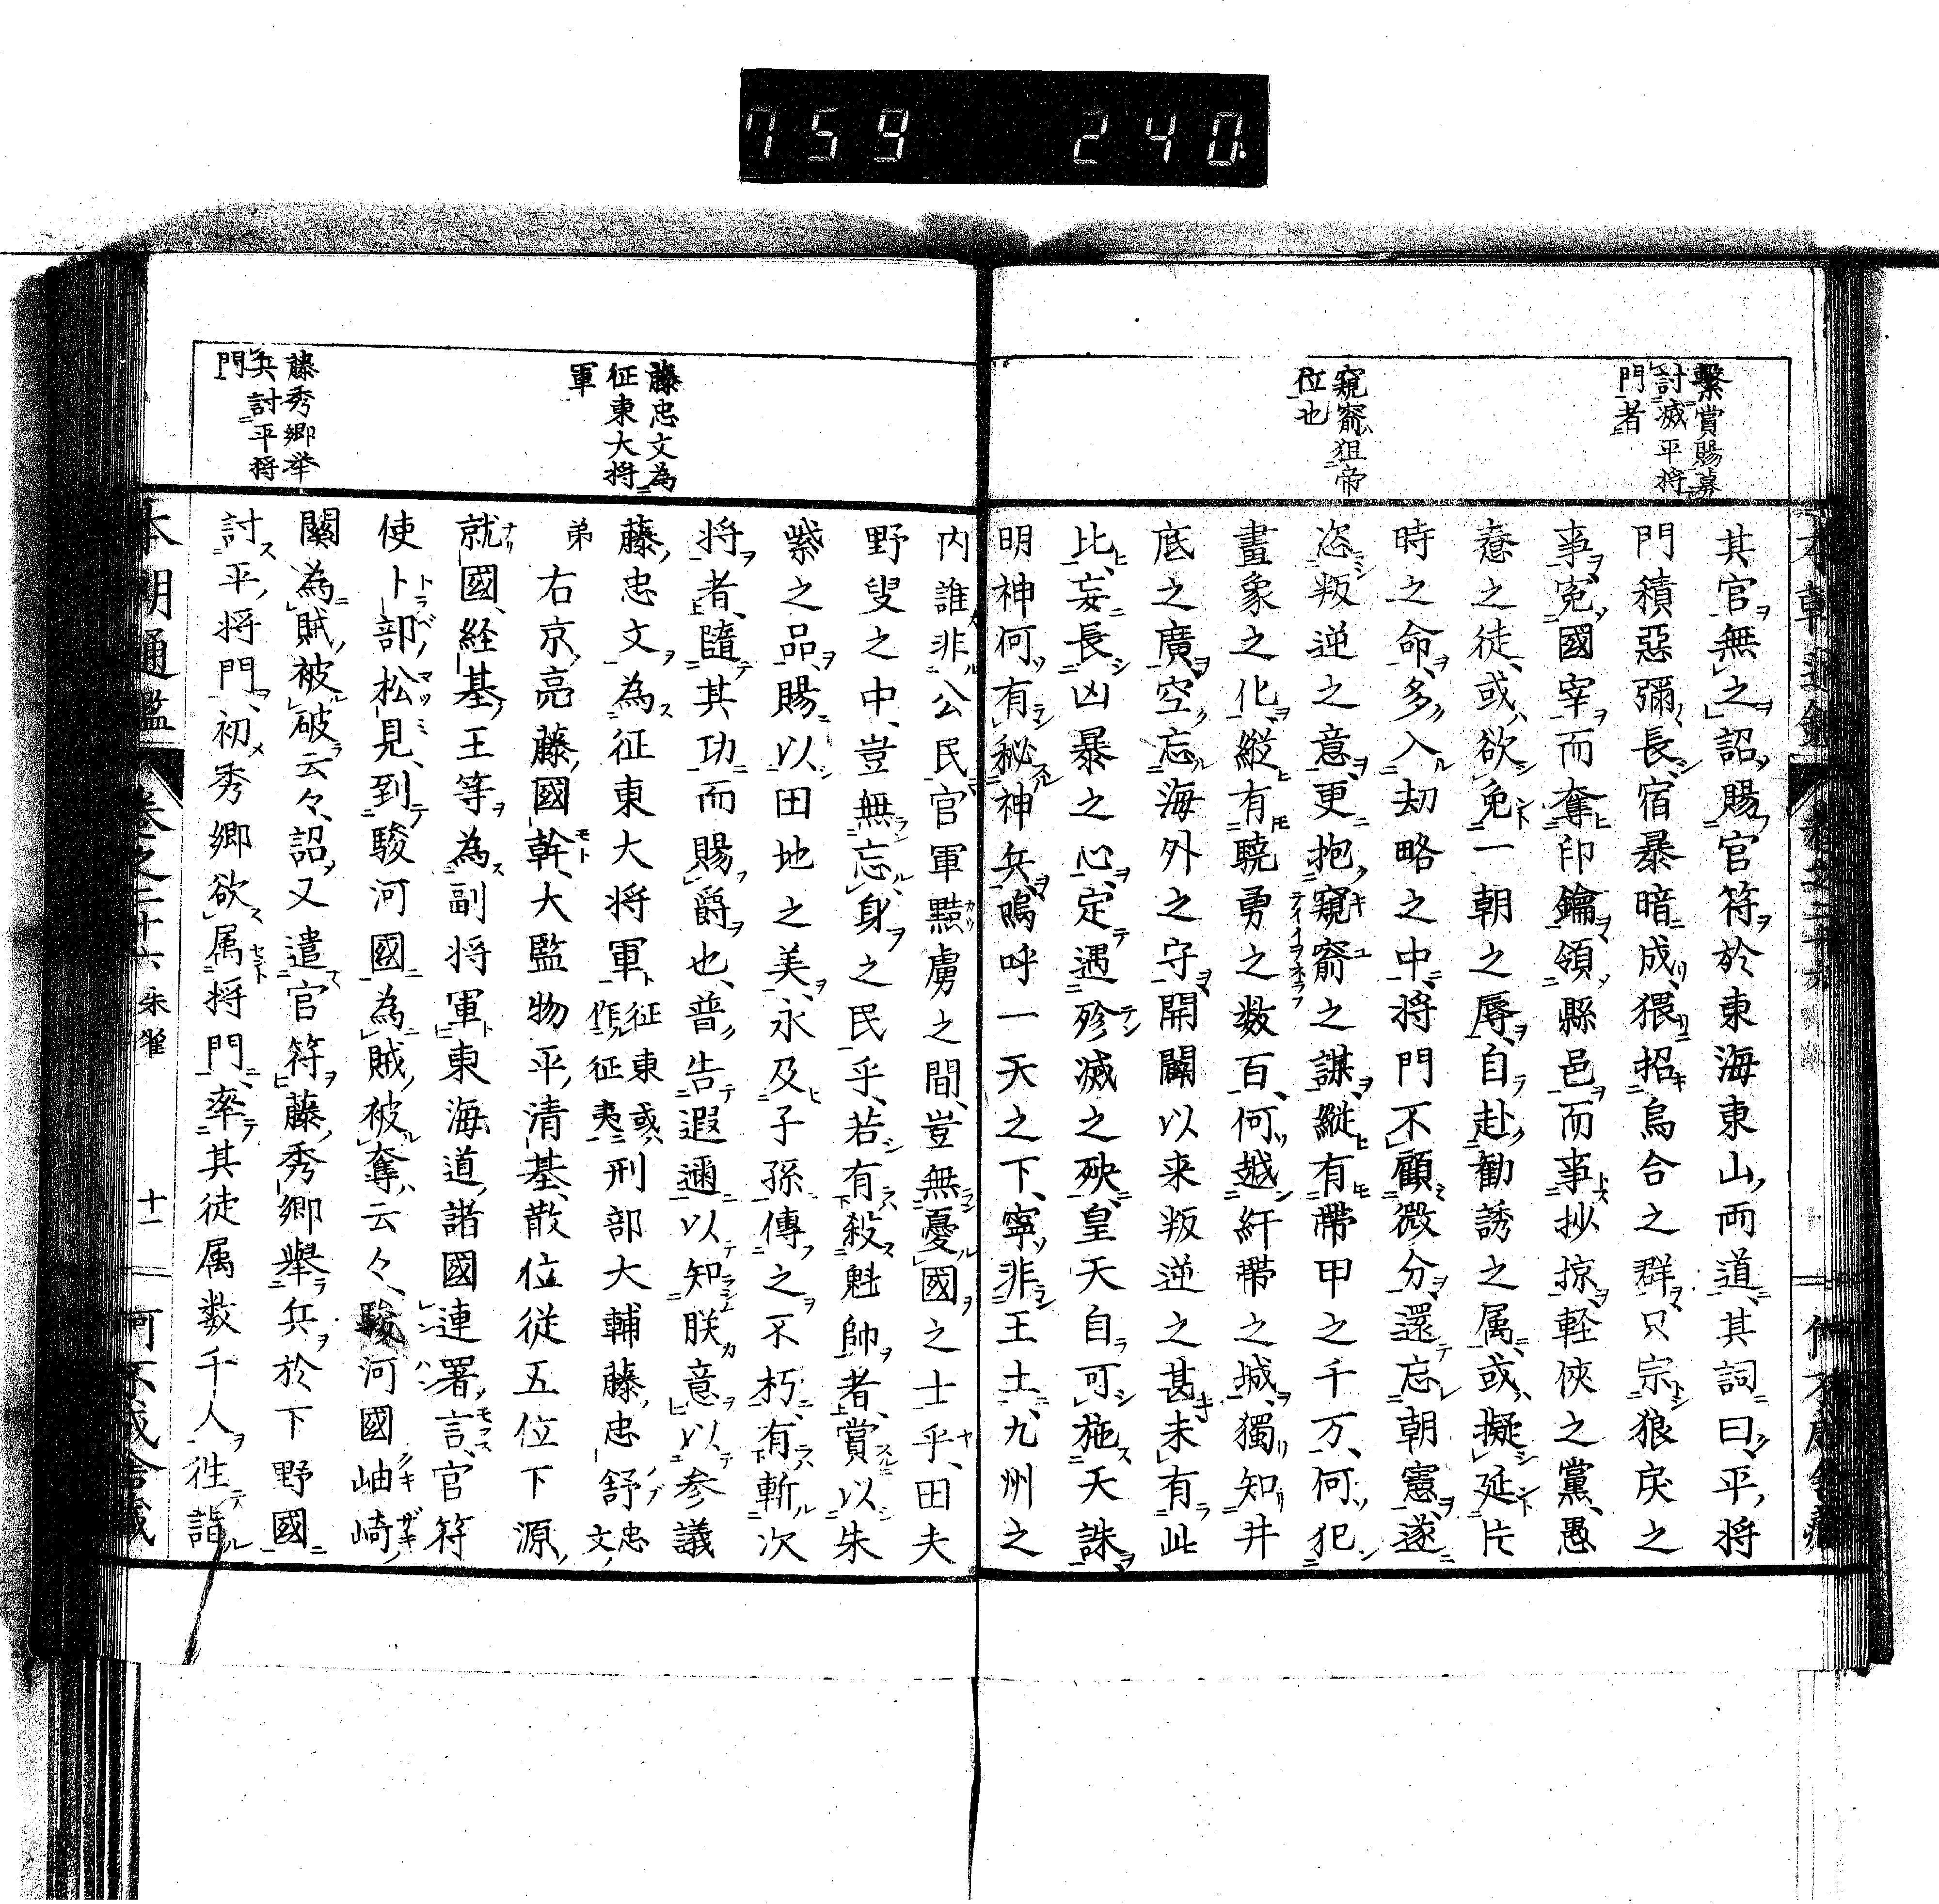 759 240
繫賞賜募
討滅平將
門者
窺窬狙帝
位也
其官無之詔賜官符於東海東山両道其詞曰平将
門積惡彌長宿暴暗成猥招烏合之群只宗狼戾之
事寃國宰而奪印鑰領縣邑而事抄掠軽俠之黨愚
憃之徒或欲免一朝之辱自赴勧誘之属或擬延片
時之命多入劫略之中将門不顧微分還忘朝憲遂
恣叛逆之意更抱窺窬之謀縦有帶甲之千万何犯
畫象之化縦有驍勇之数百何越紆帶之城獨知井
底之廣空忘海外之守開闢以来叛逆之甚未有此
比妄長凶暴之心定遇殄滅之殃皇天自可施天誅
明神何有秘神兵嗚呼一天之下寧非王土九州之
藤忠文為
征東大将
軍
藤秀郷举
兵討平将
門
内誰非公民官軍黠虜之間豈無憂國之士乎田夫
野叟之中豈無忘身之民乎若有殺魁帥者賞以朱
紫之品賜以田地之美永及子孫傳之不朽有斬次
将者隨其功而賜爵也普告遐邇以知朕意以参議
藤忠文為征東大将軍征東或作征夷刑部大輔藤忠舒忠文
弟右京亮藤國幹大監物平清基散位従五位下源
就國経基王等為副将軍東海道諸國連署言官符
使卜部松見到駿河國為賊被奪云々駿河國岫崎
關為賊被破云々詔又遣官符藤秀卿舉兵於下野國
討平将門初秀郷欲属将門率其徒属数千人徃詣
本朝通鑑 卷之二十六 朱雀 十一